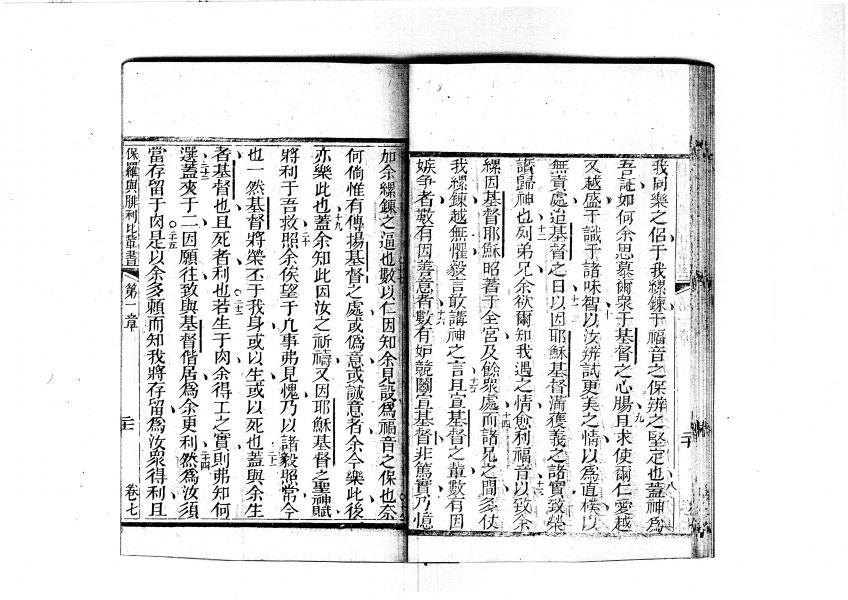 我同樂之侶于我縲鍊于福音之保辨之堅定也蓋神爲八
吾証如何余思慕爾衆于基督之心腸且求使爾仁愛越九
又越盛于識于諸味智以汝辨試更美之情以爲直樸以十
無責處迨基督之日以因耶穌基督滿獲義之諸實致榮十一
讚歸神也列弟兄余欲爾知我遇之情愈利福音以致余十二
縲因基督耶穌昭著于全宮及餘衆處而諸兄之間多仗十三十四
我縲鍊越無懼毅言敢講神之言且宣基督之輩數有因十五
嫉争者數有因善意者數有妒競鬬宣基督非篤實乃憶十六
加余縲鍊之逼也數以仁因知余見設爲福音之保也奈
何倘惟有傳揚基督之處或僞意或誠意者余今樂此後
亦樂此也蓋余知此因汝之祈禱又因耶穌基督之聖神賦十九
將利于吾救照余俟望于凢事弗見愧乃以諸毅照常今二十
也一然基督將榮丕于我身或以生或以死也蓋與余生二十一
者基督也且死者利也若生于肉余得工之實則弗知何二十二
選蓋夾于二因願往致與基督偕居爲余更利然爲汝須二十三二十四
當存留于肉是以余多賴而知我將存留爲汝衆得利且二十五
保羅與腓利比輩書 第一章 二十 卷七